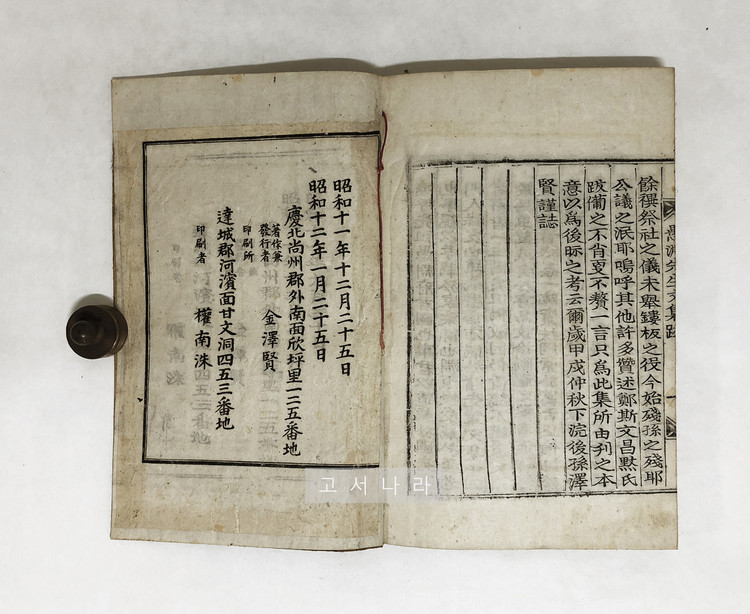 餘禩祭社之儀未舉鏤板之役今始殘孫之殘耶
公議之泯耶嗚呼其他許多贊述鄭斯文昌默氏
跋備之不肖更不贅一言只爲此集所由刊之本
意以爲後昹之考云爾歲甲戌仲秋下浣後孫澤
賢謹誌
先生文集跋
昭和十一年十二月二十五日
昭和十二年一月二十五日
慶北尚州郡外南面欣坪里一二五番地
著作兼
發行者 金澤賢
印刷所
達城郡河濱面甘文洞四五三番地
印刷者 權南洙
고서나라